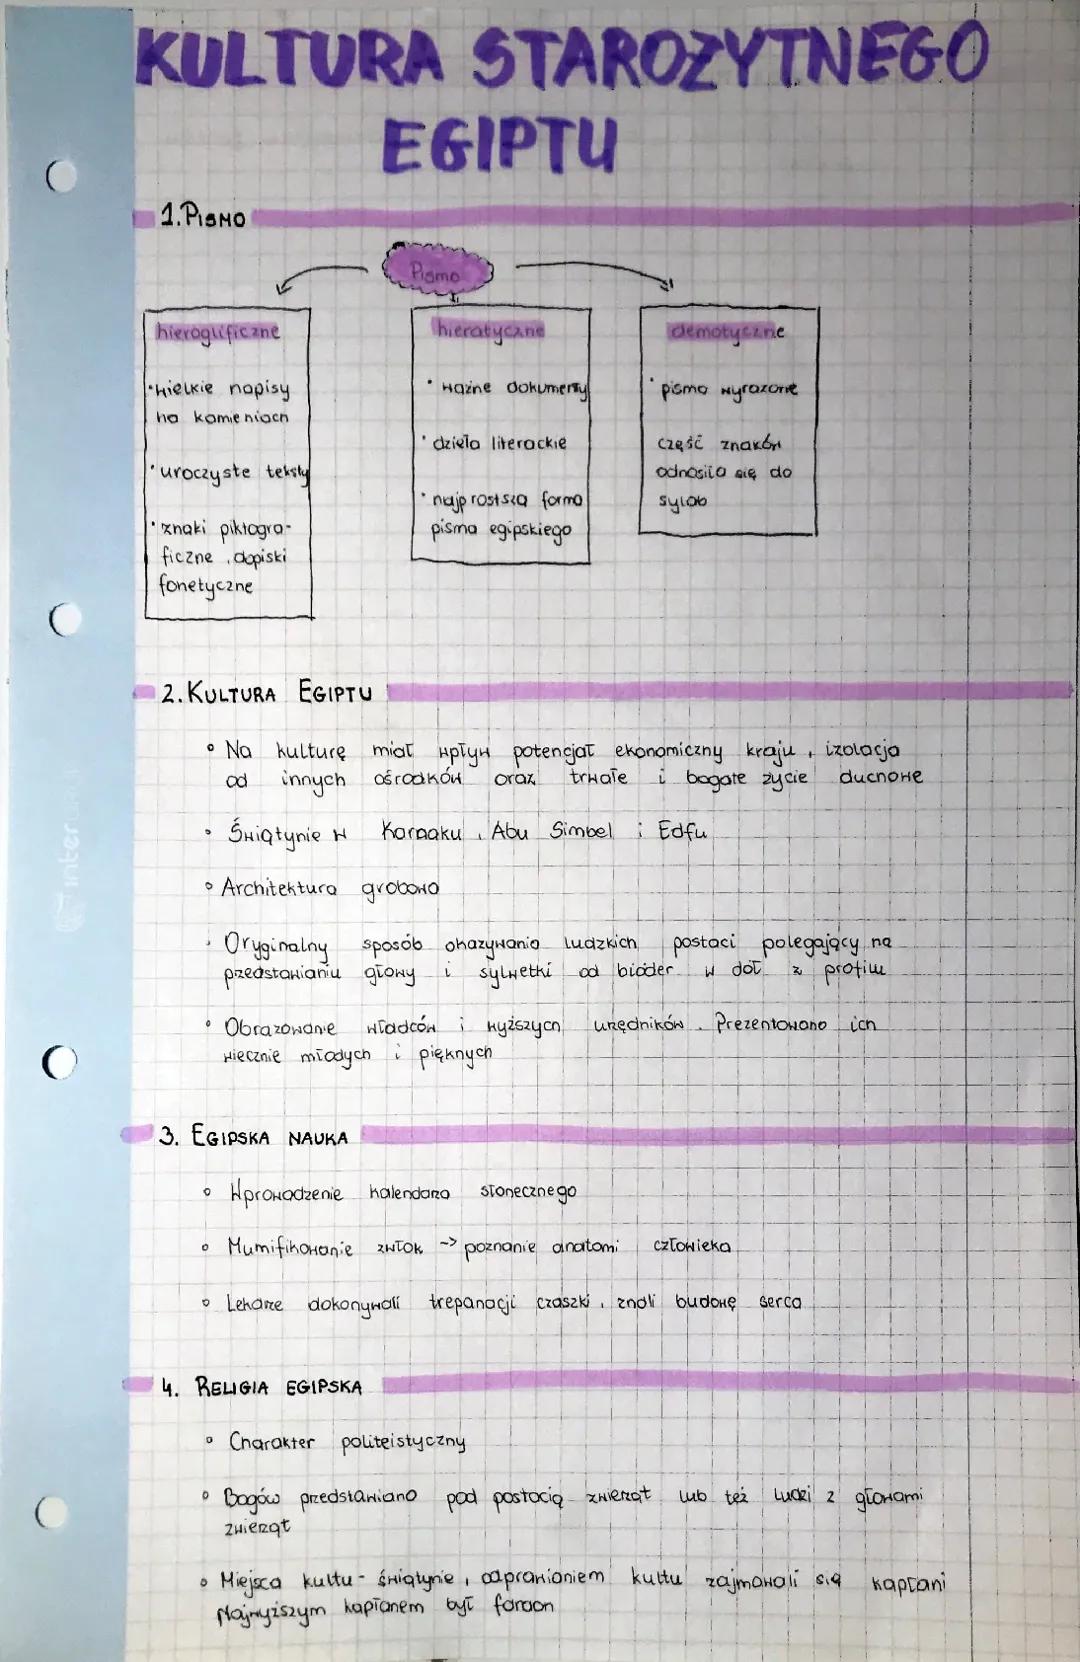 KULTURA STAROŻYTNEGO
EGIPTU
1. PISMO
Pismo
hieroglificzne
• wielkie napisy
na kamieniach
• uroczyste teksty
• znaki piktogra-
ficzne, dopiski
fonetyczne
hieratyczne
• ważne dokumenty
• dzieła literackie
• najprostsza forma
pisma egipskiego
demotyczne
• pismo wyrazone
część znaków
odnosiła się do
sylab
2. KULTURA EGIPTU
• Na kulturę miał wpływ potencjał ekonomiczny kraju, izolacja
od innych ośrodków oraz trwałe i bogate życie duchowe
• Świątynie w Karnaku, Abu Simbel i Edfu
• Architektura grobowa
• Oryginalny sposób okazywania ludzkich postaci polegający na
przedstawianiu głowy i sylwetki od bioder w dół z profilu
• Obrazowanie władców i wyższych urzędników. Prezentowano ich
wiecznie młodych i pięknych
3. EGIPSKA NAUKA
• Wprowadzenie kalendarza słonecznego
• Mumifikowanie zwłok -> poznanie anatomi człowieka
• Lekarze dokonywali trepanacji czaszki, znali budowę serca
4. RELIGIA EGIPSKA
• Charakter politeistyczny
• Bogów przedstawiano pod postacią zwierząt lub też ludzi z głowami
zwierząt
• Miejsca kultu - świątynie, odprawianiem kultu zajmowali się kapłani
Najwyższym kapłanem był faraon